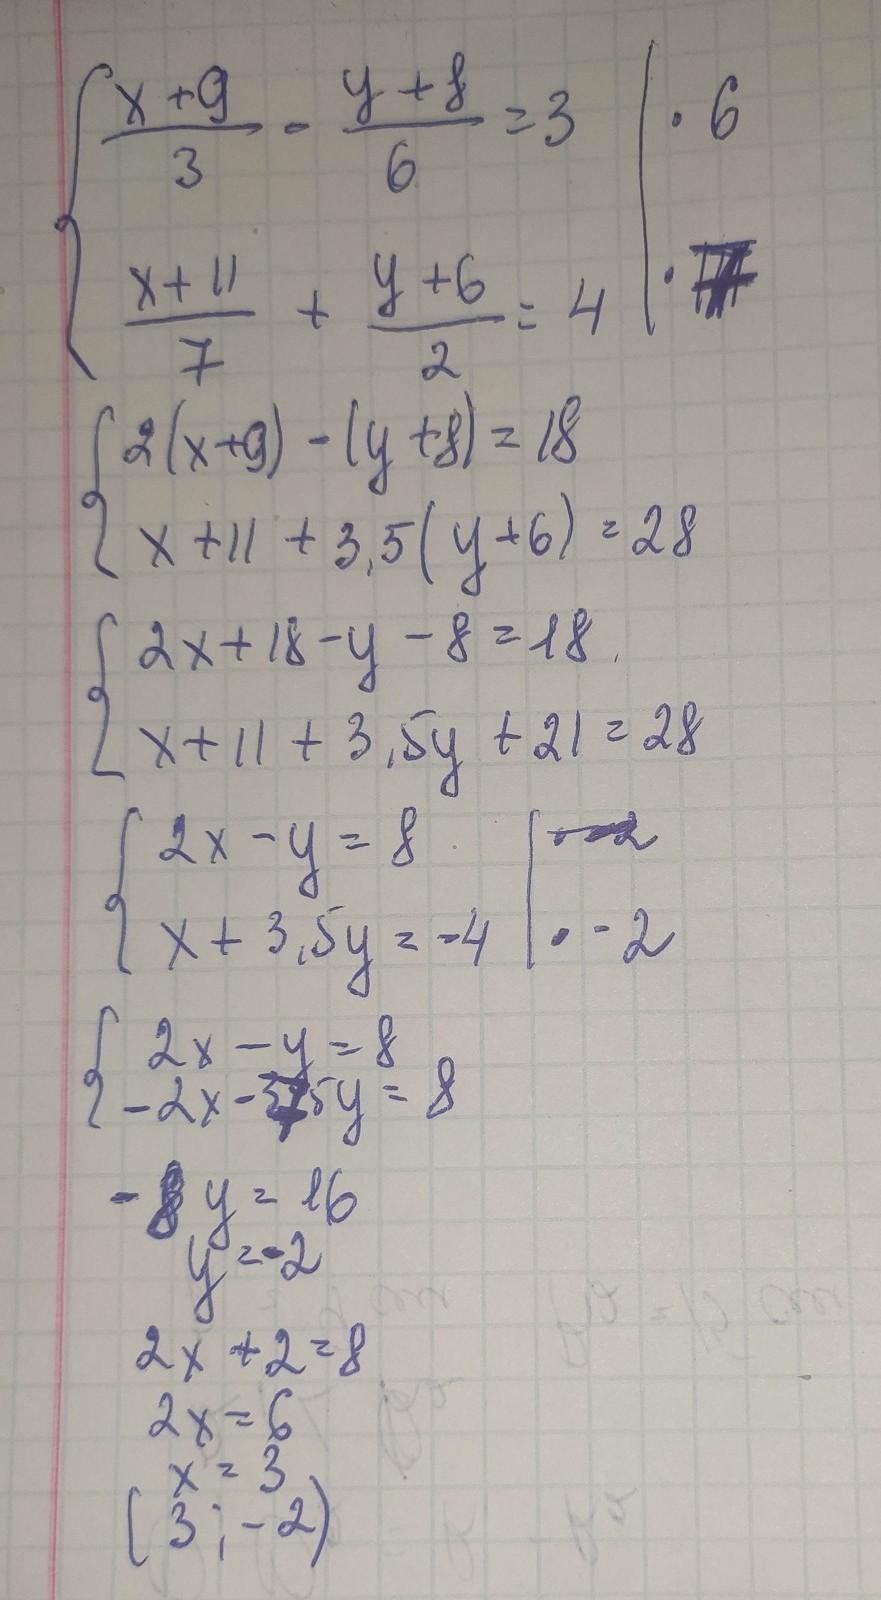 { (x+9)/3 - (y+8)/6 = 3 | · 6
(x+11)/7 + (y+6)/2 = 4 | ·
{ 2(x+9) - (y+8) = 18
x+11 + 3,5(y+6) = 28
{ 2x+18-y-8=18
x+11+3,5y+21=28
{ 2x-y=8
x+3,5y=-4 | · -2
{ 2x-y=8
-2x-75y=8
-8y=16
y=-2
2x+2=8
2x=6
x=3
(3;-2)